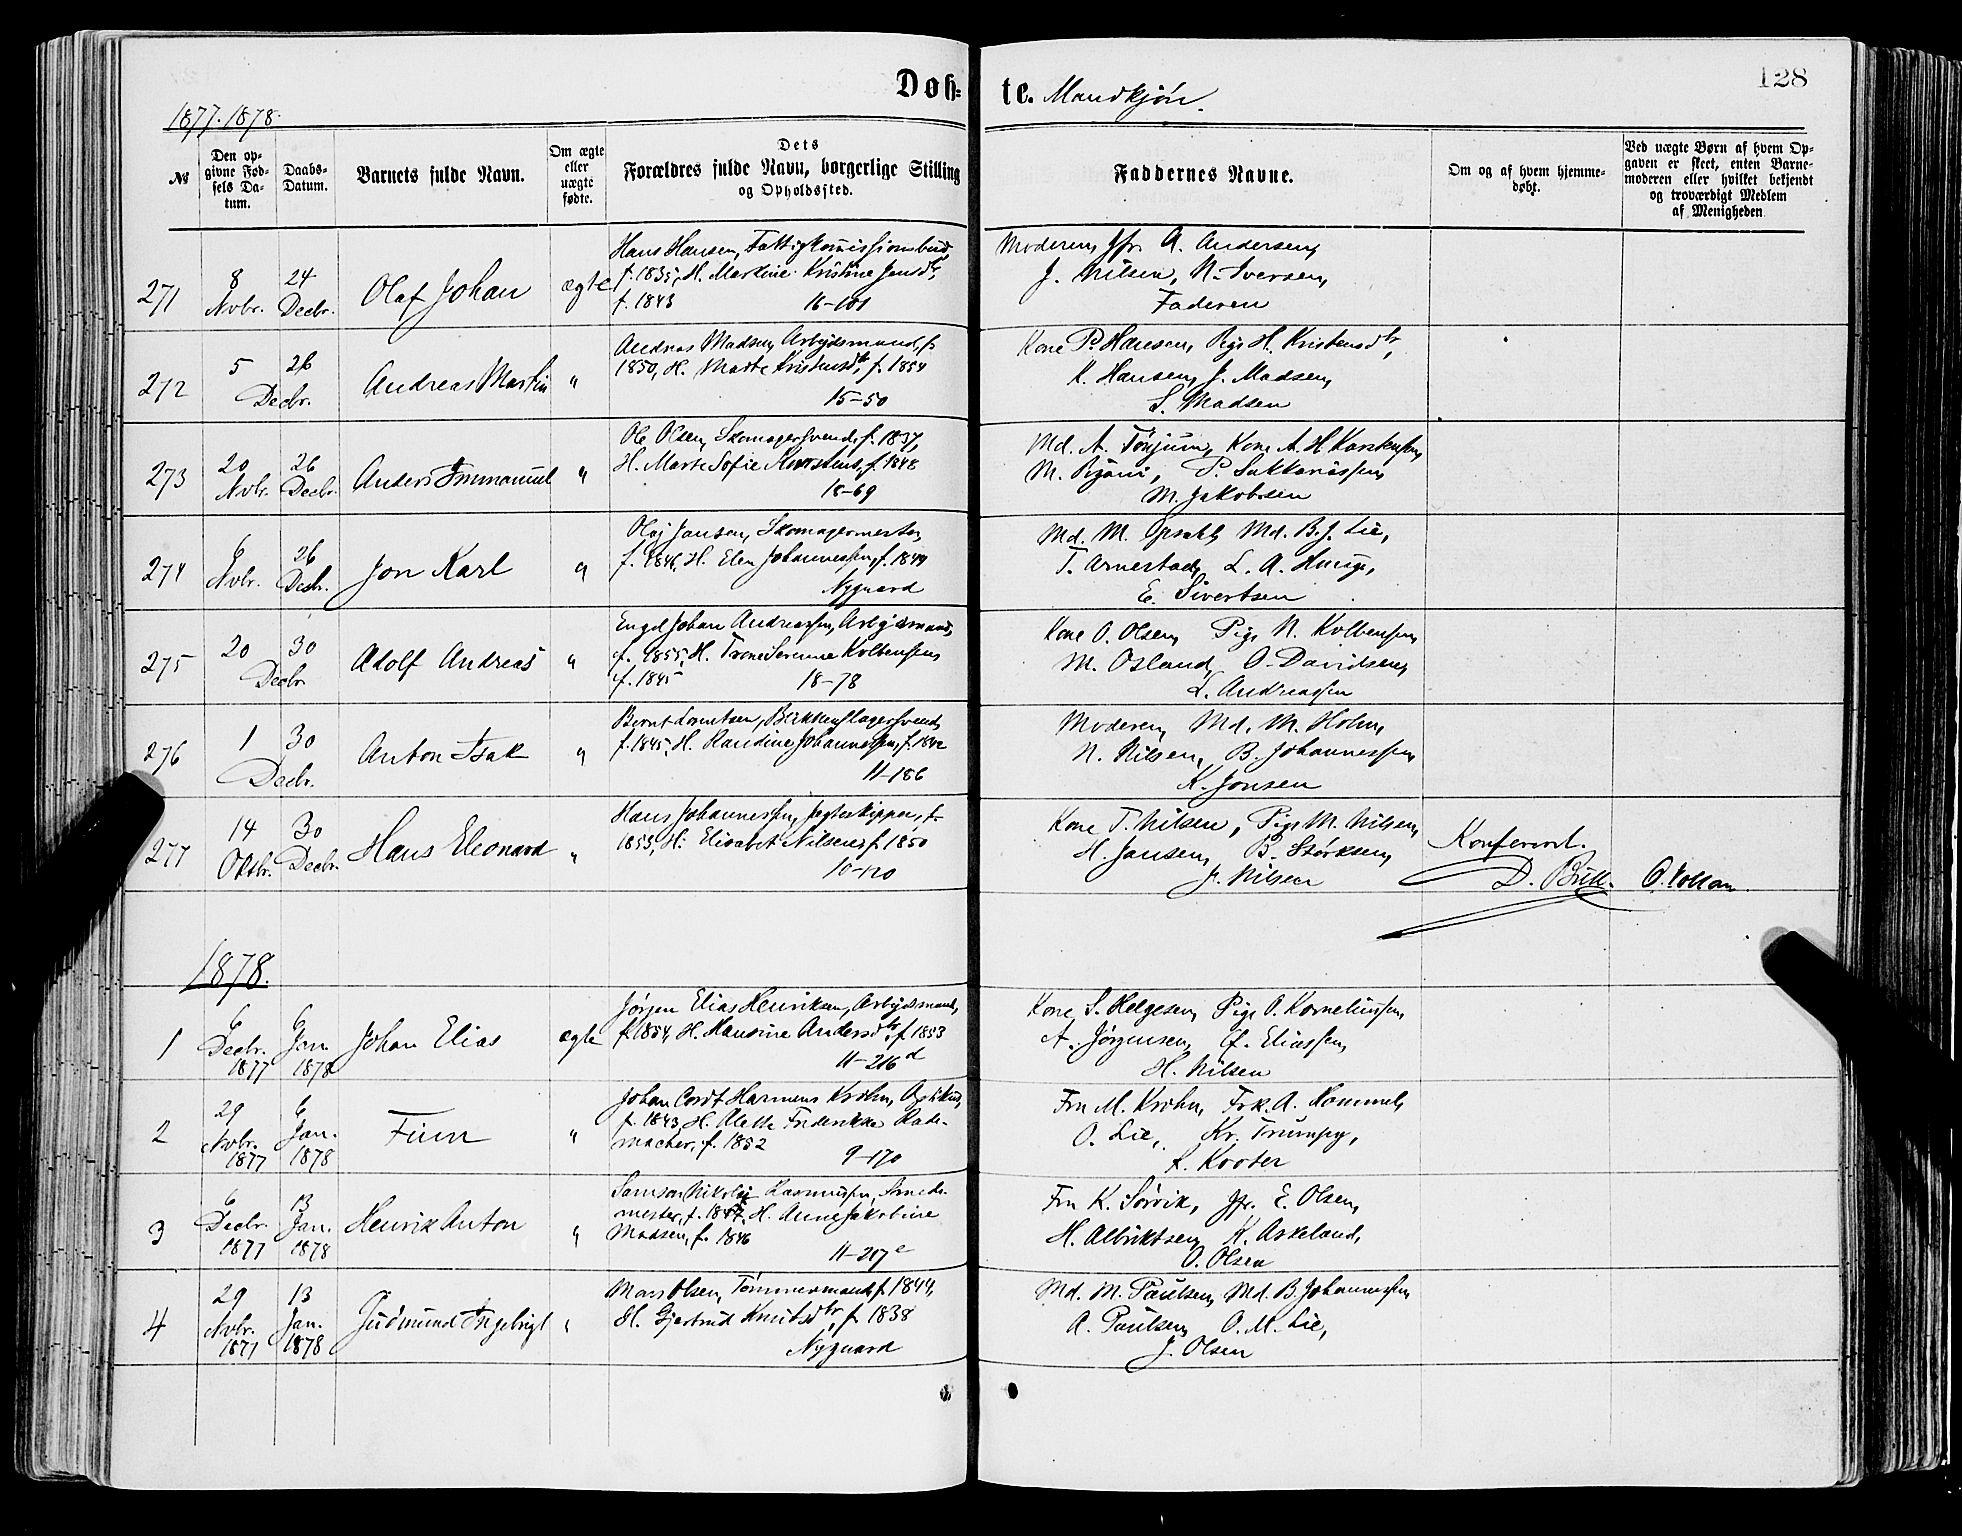 Døb-te. Mandkjøn.
128
1877. 1878.
№
Den op-
givne Fød-
sels Da-
tum.
Daabs-
Datum.
Barnets fulde Navn.
Om ægte
eller
uægte
fødte.
Dets
Forældres fulde Navn, borgerlige Stilling
og Opholdssted.
Faddernes Navne.
Om og af hvem hjemme-
døbt.
Ved uægte Børn af hvem Op-
gaven er skeet, enten Barne-
moderen eller hvilket bekjendt
og troværdigt Medlem
af Menigheden
271
8
Nvbr.
24
Decbr.
Olaf Johan
ægte
Hans Hansen, Fattigkomissionsbud,
f. 1835, H. Martine Kristine Jensdtr,
f. 1843 16-101
Moderen, Jfr. A. Andersen,
J. Nilsen, N. Iversen,
Faderen
272
5
26
Decbr.
Andreas Martin
"
Andreas Madsen, Arbejdsmand, f.
1850, H. Marte Kristensdtr, f. 1854
15-50
Kone P. Hansen, Pige H. Kristensdtr,
K. Hansen, J. Madsen,
S. Madsen
273
20
Nvbr.
26
Decbr.
Anders Immanuel
"
Ole Olsen, Skomagersvend, f. 1837,
H. Marte Sofie Karstens, f. 1848
18-69
Md. A. Tønjum, Kone A. H. Karstensen,
M. P. Sakkariassen,
M. Jakobsen
274
6
Nvbr.
26
Decbr.
Jon Karl
"
Olaj Jansen, Skomagermester,
f. 1846, H. Elen Johannessen, f. 1849
Nygaard
Md. M. Opsahl, Md. B. J. Lie,
T. Arnestad, L. A.
E. Sivertsen
275
20
30
Decbr
Adolf Andreas
"
Engel Johan Andreassen, Arbejdsmand,
f. 1855, H. Trone Serine Kolbensen,
f. 1845 18-78
Kone O. Olsen, Pige N. Kolbensen,
M. Osland, O. Davidsen,
L. Andreassen
276
1
30
Decbr.
Anton Isak
"
Bernt Lorentsen, Blikkenslagersvend,
f. 1845, H. Randine Johannessen, f. 1842
11-186
Moderen, Md. M. Holm,
N. Nilsen, B. Johannessen,
K. Jonsen
277
14
Oktbr.
30
Decbr.
Hans Eleonard
"
Hans Johannessen, Jagteskipper, f.
1853, H. Elisabet Nilsen, f. 1850
10-120
Kone T. Nilsen, Pige M. Nilsen,
H. Jansen, B. Størksen,
J. Nilsen
Konfereret.
D. Bull. O.
1878.
1
6
Decbr.
1877
6
Jan
1878
Johan Elias
ægte
Jørgen Elias Henriksen, Arbejdsmand,
f. 1854, H. Hansine Andersdtr, f. 1853
11-216 d
Kone S. Helgesen, Pige O. Korneliussen,
A. Jørgensen, E. Eliassen,
H. Nilsen
2
29
Nvbr.
1877
6
Jan.
1878
Finn
"
Johan Cordt Harmens Krohn,
f. 1843, H. Alette Frederikke Rade-
macher, f. 1852 9-170
Fru M. Krohn, Frk. A. Hammel,
O. Lie, Kr. Trumpy,
L. Koster
3
6
Decbr.
1877
13
Jan.
1878
Henrik Anton
"
Samson Nikolaj Rasmussen, Smede-
mester, f. 1847, H. Anne Jakobine
Madsen, f. 1846 11-217 e
Fru K. Sørvik, Jfr. E. Olsen,
H. Albriktsen, K. Askeland,
O. Olsen
4
29
Nvbr.
1877
13
Jan.
1878
Gudmund Ingebrigt
"
Mons Olsen, Tømmermand, f. 1844,
H. Gjertrud Knutsdtr, f. 1838
Nygaard
Md. M. Paulsen, Md. B. Johannessen,
A. Paulsen, O. M. Lie,
J. Olsen